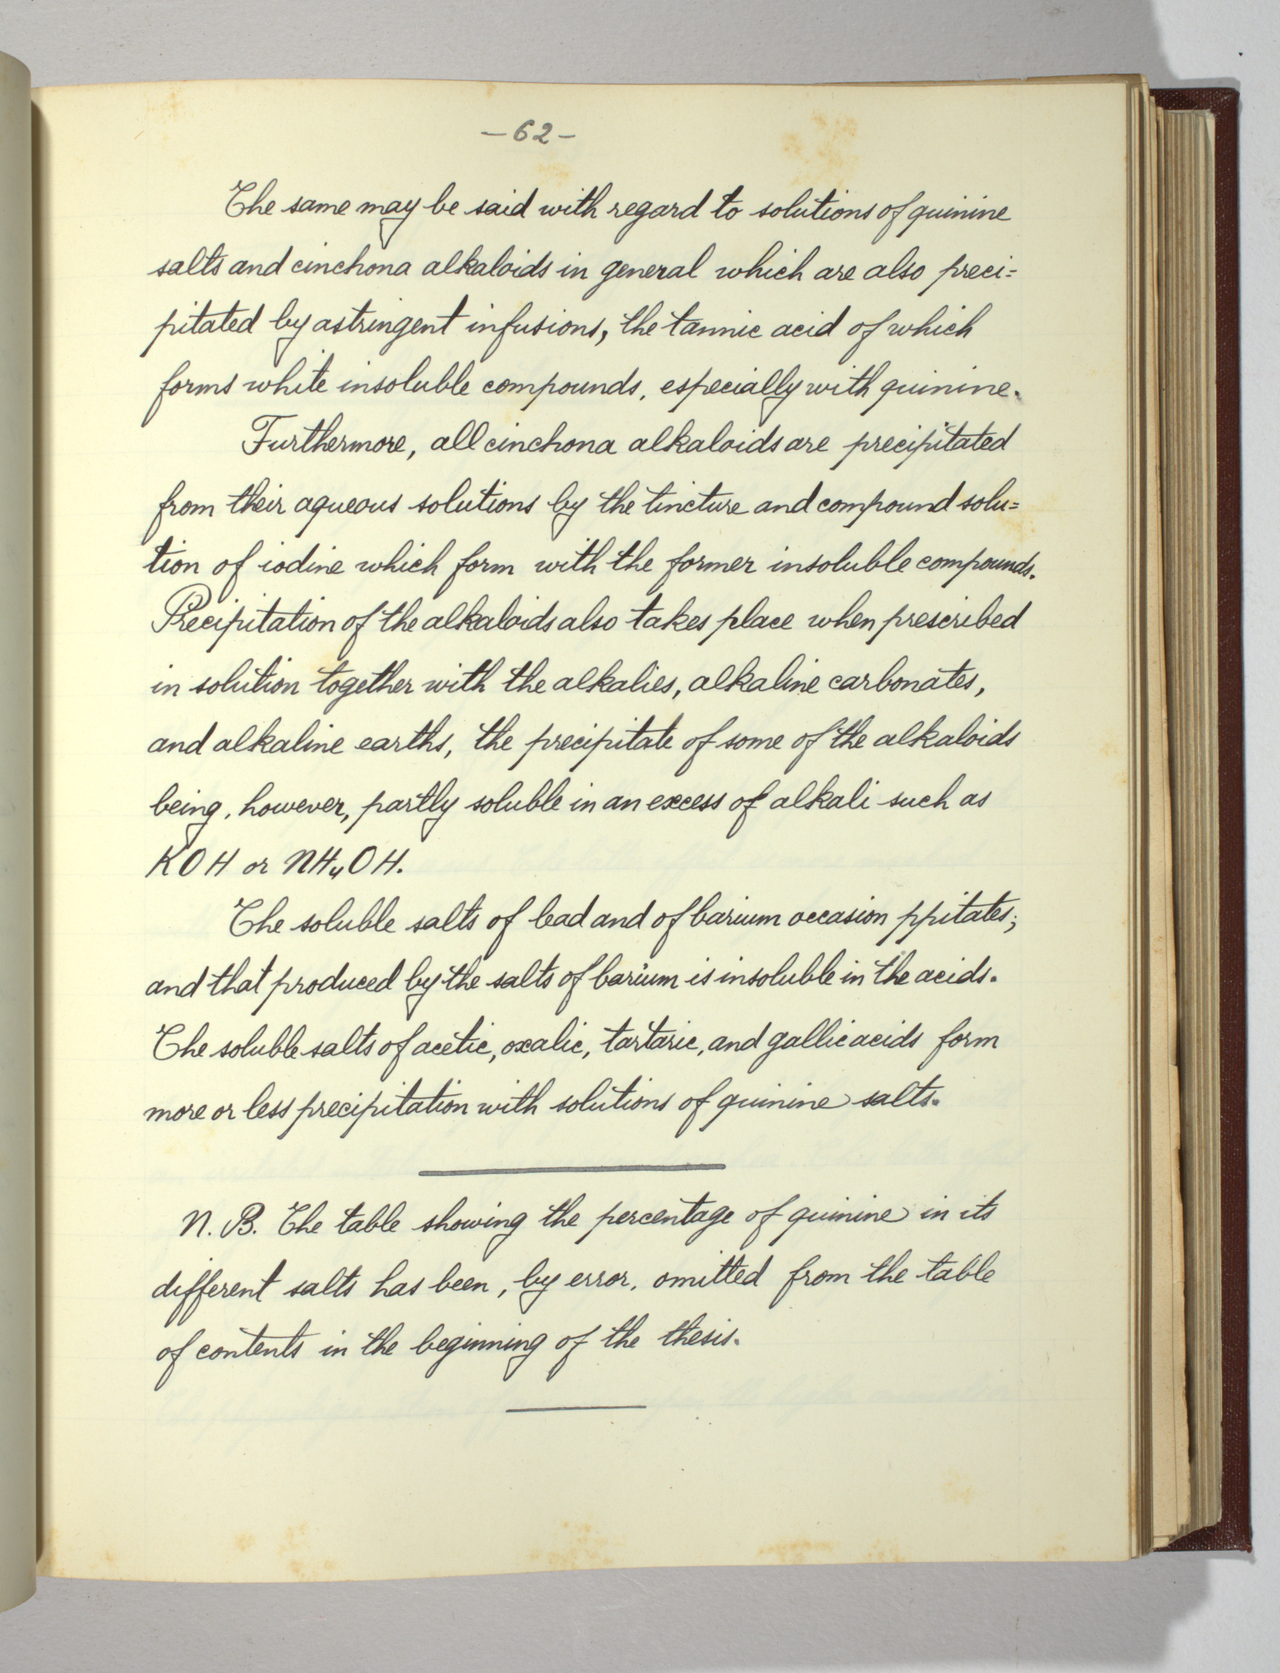 –62–
The same may be said with regard to solutions of quinine
salts and cinchona alkaloids in general which are also preci=
pitated by astringent infusions, the tannic acid of which
forms white insoluble compounds, especially with quinine.
Furthermore, all cinchona alkaloids are precipitated
from their aqueous solutions by the tincture and compound solu=
tion of iodine which form with the former insoluble compounds.
Precipitation of the alkaloids also takes place when prescribed
in solution together with the alkalies, alkaline carbonates,
and alkaline earths, the precipitate of some of the alkaloids
being, however, partly soluble in an excess of alkali such as
KOH or NH₄OH.
The soluble salts of lead and of barium occasion ppitates;
and that produced by the salts of barium is insoluble in the acids.
The soluble salts of acetic, oxalic, tartaric, and gallic acids form
more or less precipitation with solutions of quinine salts.
N. B. The table showing the percentage of quinine in its
different salts has been, by error, omitted from the table
of contents in the beginning of the thesis.